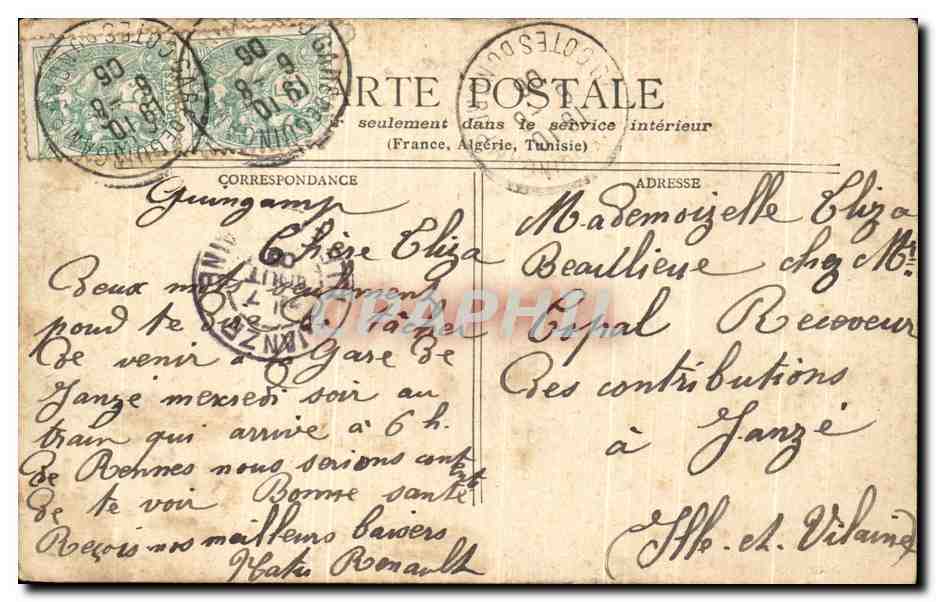 CARTE POSTALE
seulement dans le service intérieur
(France, Algérie, Tunisie)
CORRESPONDANCE
Guingamp
Chère Eliza
Deux mots seulement
poud te dire de tâcher
de venir à la Gare de
Janzé mercredi soir au
train qui arrive à 6 h.
de Rennes nous serions content
de te voir Bonne santé
Reçois nos meilleurs baisers
Renault
ADRESSE
Mademoizelle Eliza
Beaullieue chez Mr
Espal Receveur
des contributions
à Janzé
(Ille-et-Vilaine)
GARE DE GUINGAMP COTES DU N
19 10
8 - 8
06
GARE DE GUINGAMP
19 10
8 - 8
06
COTES DU N
06
JANZÉ
AOUT
06
CPAPHIL